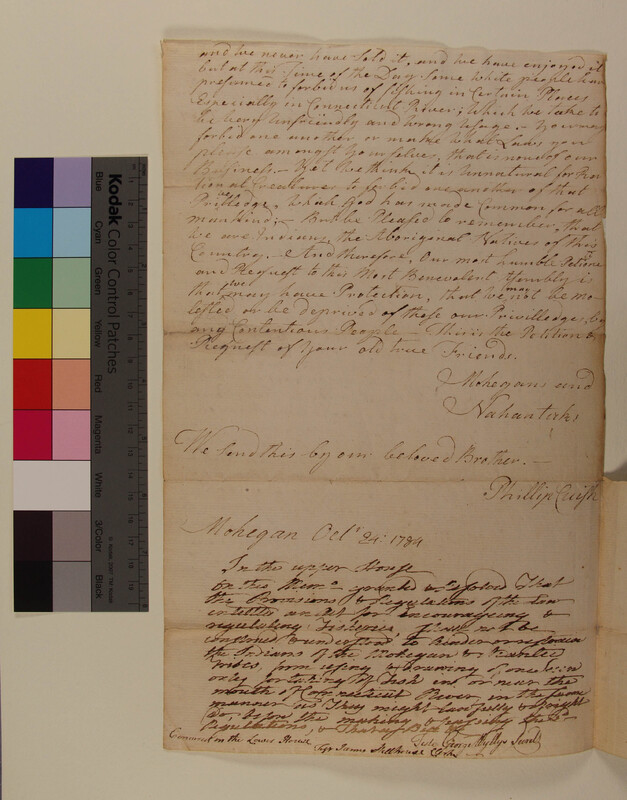 and we never have Sold it, and we have enjoyed it
but at this Time of the Day Some white people have
presumed to forbid us of fishing in Certain Places
Especially in Connecticut River; Which we take to
be very unfriendly and wrong Usage. - You may
forbid one another or make what Laws you
please amongst Yourselves, that is none of our
Business. - Yet we think, it is unnatural for Ra
tional Creatures to forbid one another of that
Priviledge, Which God has made Common for all
mankind; - But be Pleased to remember, that
we are Indians, the Aboriginal Natives of this
Country, - And therefore, Our most humble Petition
and Request to this Most Benevolent Assembly is
that we may have Protection, that we may not be mo
lested or be deprived of these our Priviledge, by
any Contentious People - This is the Petition &
Request of Your old true Friends.
Mohegans and
Nahantick's
We Send this by our beloved Brother. -
Phillip Cuish
Mohegan Octr 24: 1784
In the upper House
On this Meml granted & resolved That
the Provisions & Regulations of the Law
intitled an Act for encourageing &
regulating Fisheries, shall not be
construed & understood to hinder or restrain
the Indians of the Mohegan & Niantic
Tribes, from using & drawing one Seine
only for taking of Fish in or near the
mouth of Connecticut River in the same
manner as They might lawfully & of right
do, before the making & passing the sd
Regulations, & that a Bill &c
Concurred in the Lower House
Teste George Wyllys Secrety
Test James Hillhouse Clerk
Kodak Color Control Patches
Blue
Cyan
Green
Yellow
Red
Magenta
White
3/Color
Black